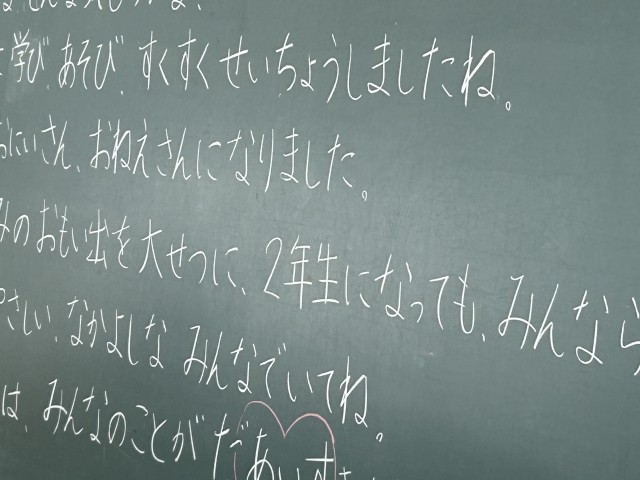 学び、あそび、すくすくせいちょうしましたね。
おにいさん、おねえさんになりました。
みのおもい出を大せつに、2年生になっても、みんなら
さしい、なかよしなみんなでいてね。
は、みんなのことがだあいす